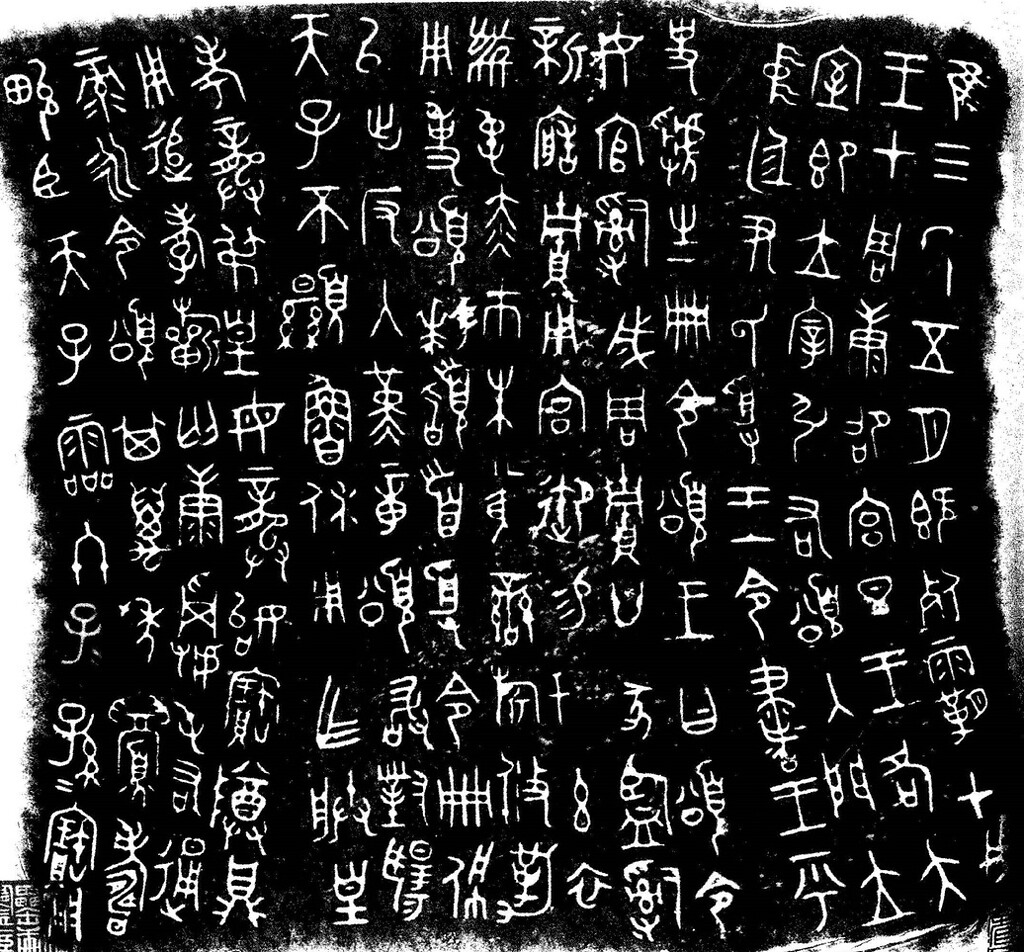 隹三年五月既死霸甲戌
王才周康卲宮旦王各大
室即立宰弘右頌入門立
中廷尹氏受王令書王乎
史虢生冊令頌王曰頌令
女官𤔲成周貯廿家監𤔲
新造貯用宮御易女玄衣
黹屯赤巿朱黃䜌旂攸勒
用事頌拜𩒨首受令冊佩
以出反入堇章頌敢對揚
天子不顯魯休用乍朕皇
考龏弔皇母龏姒寶尊鼎
用追孝𣄨匄康屯右通
彔永令頌其萬年眉壽
畯臣天子霝冬子孫寶用